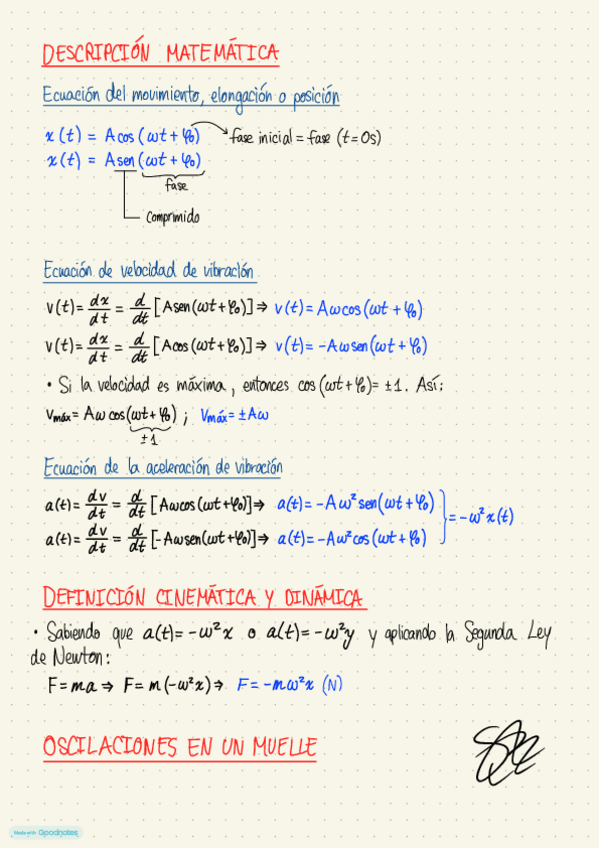 DESCRIPCIÓN MATEMÁTICA
Ecuación del movimiento, elongación o posición
x(t) = A cos (ωt + φ₀) → fase inicial = fase (t = 0s)
x(t) = A sen (ωt + φ₀)
fase
Comprimido
Ecuación de velocidad de vibración
v(t) = dx/dt = d/dt [A sen(ωt + φ₀)] ⇒ v(t) = Aω cos (ωt + φ₀)
v(t) = dx/dt = d/dt [A cos(ωt + φ₀)] ⇒ v(t) = -Aω sen(ωt + φ₀)
• Si la velocidad es máxima, entonces cos (ωt + φ₀) = ±1. Así:
Vmáx = Aω cos(ωt + φ₀) ; Vmáx = ±Aω
±1
Ecuación de la aceleración de vibración
a(t) = dv/dt = d/dt [Aω cos(ωt + φ₀)] ⇒ a(t) = -Aω² sen(ωt + φ₀)
a(t) = dv/dt = d/dt [-Aω sen(ωt + φ₀)] ⇒ a(t) = -Aω² cos(ωt + φ₀)
= -ω² x(t)
DEFINICIÓN CINEMÁTICA Y DINÁMICA
• Sabiendo que a(t) = -ω²x o a(t) = -ω²y y aplicando la Segunda Ley
de Newton:
F = ma ⇒ F = m(-ω²x) ⇒ F = -mω²x (N)
OSCILACIONES EN UN MUELLE
Made with Goodnotes